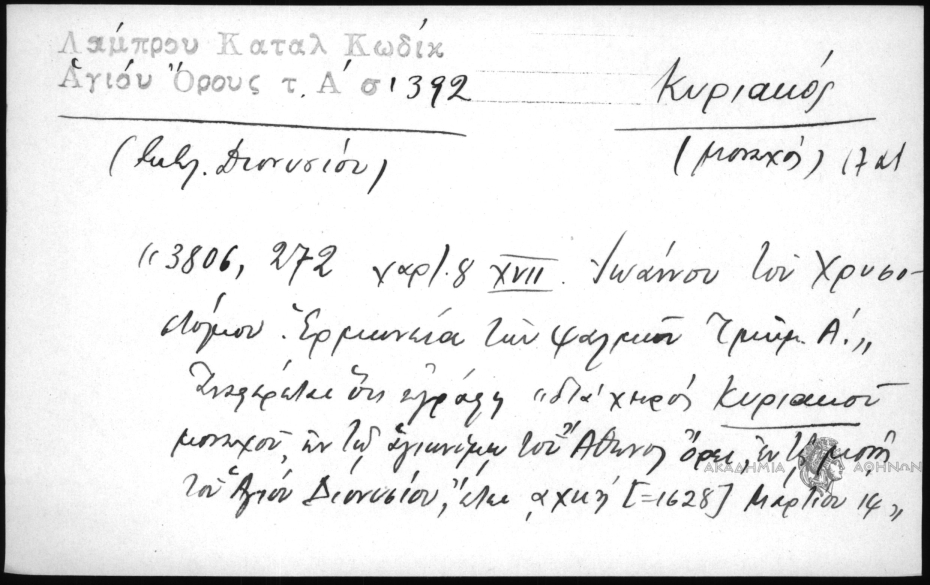 Λάμπρου Καταλ Κωδίκ
Ἁγίου Ὄρους τ. Α' σ. 392
Κυριακός
(βιβλ. Διονυσίου)
(μοναχός) 17 αἰ
"3806, 272 χαρτ. 8 XVII. Ἰωάννου τοῦ Χρυσο-
στόμου Ἑρμηνεία τῶν ψαλμῶν Τμῆμ. Α'."
Ἀναφέρεται ὅτι ἐγράφη "διὰ χειρός Κυριακοῦ
μοναχοῦ, ἐν τῷ ἁγιωνύμῳ τοῦ Ἄθωνος ὄρει, ἐν τῇ μονῇ
τοῦ Ἁγίου Διονυσίου, ἔτει αχκή [=1628] Μαρτίου 14"
ΑΚΑΔΗΜΙΑ ΑΘΗΝΩΝ